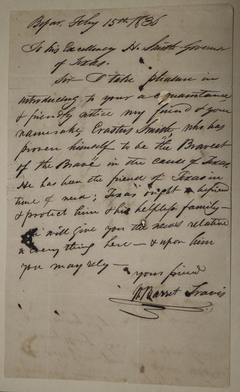 Bejar, Feby 15th 1836
To his Excellency H. Smith Governor
of Texas.
Sir I take pleasure in
introducing to your acquaintance
& friendly notice my friend & your
namesake Erastus Smith who has
proven himself to be the Bravest
of the Brave in the cause of Texas
He has been the friend of Texas in
time of need; Texas ought
& protect him & his helpless family—
He will give you the news relative
to every thing here— & upon him
you may rely—
your friend
W Barret Travis